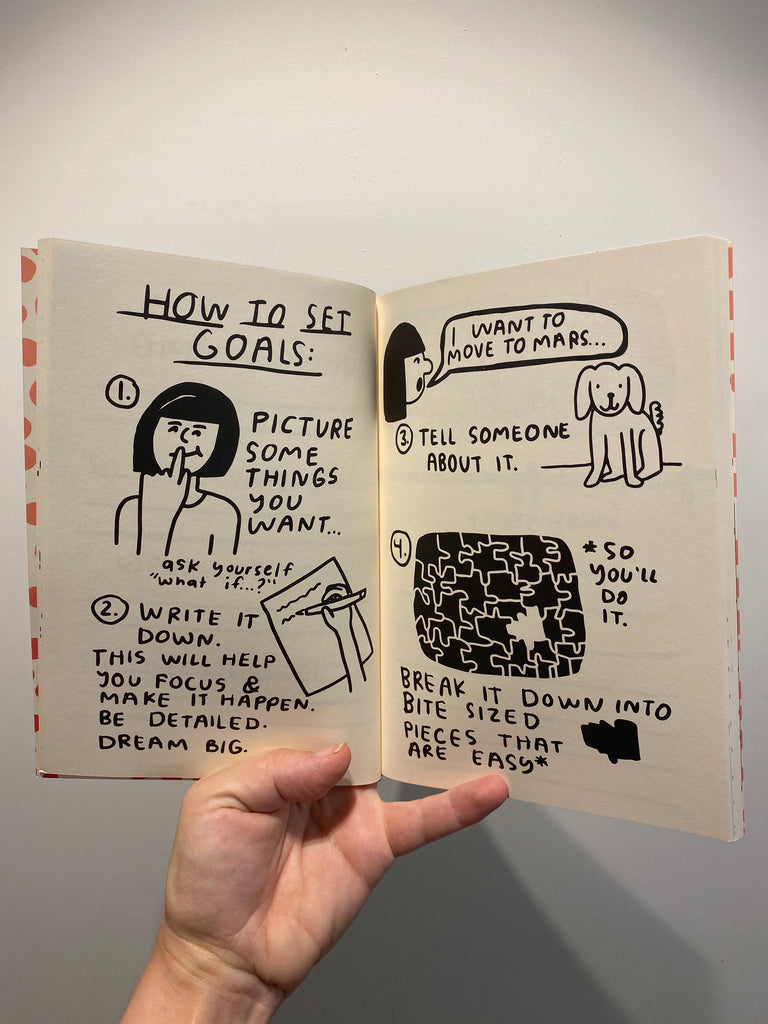 HOW TO SET
GOALS:
1.
PICTURE
SOME
THINGS
YOU
WANT...
ask yourself
"what if...?"
2. WRITE IT
DOWN.
THIS WILL HELP
YOU FOCUS &
MAKE IT HAPPEN.
BE DETAILED.
DREAM BIG.
I WANT TO
MOVE TO MARS...
3 TELL SOMEONE
ABOUT IT.
4.
*SO
YOU'LL
DO
IT.
BREAK IT DOWN INTO
BITE SIZED
PIECES THAT
ARE EASY*